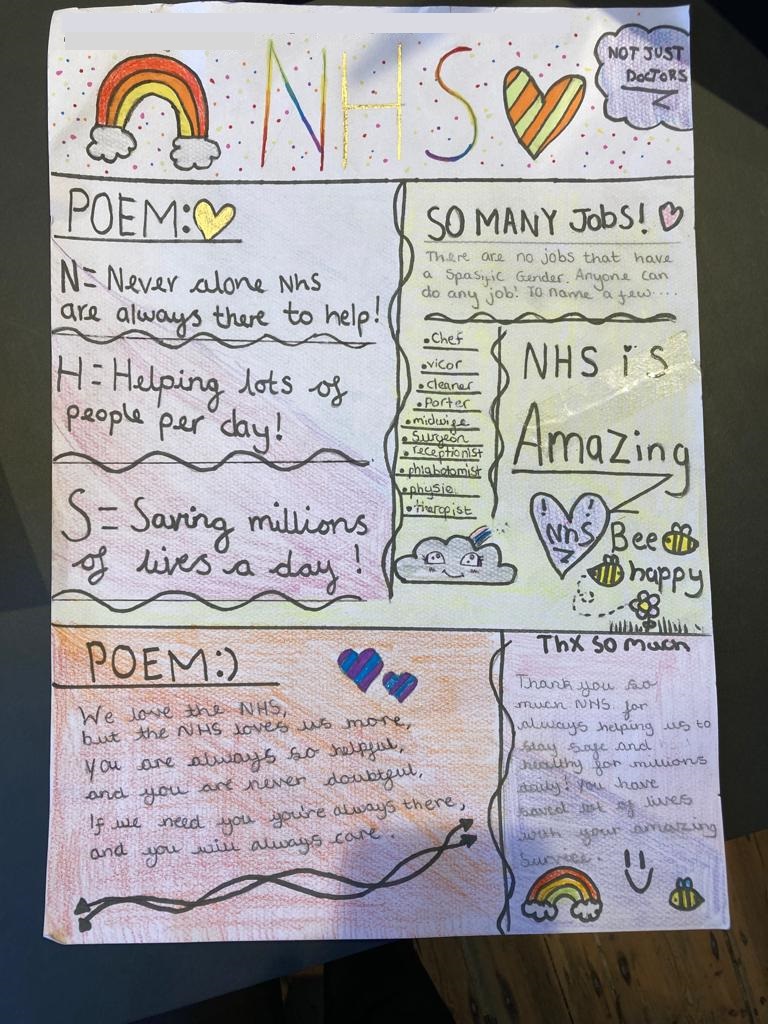 NHS
NOT JUST
DOCTORS
POEM:
N= Never alone Nhs
are always there to help!
H= Helping lots of
people per day!
S= Saving millions
of lives a day!
SO MANY JOBS!
There are no jobs that have
a Spasific Gender. Anyone can
do any job! TO name a few....
•Chef
•vicor
•cleaner
•Porter
•midwife
•Surgeon
•receptionist
•phlabotomist
•physio
•therapist
NHS is
Amazing
!NhS!
Bee
happy
POEM:)
We love the NHS,
but the NHS loves us more,
You are always so helpful,
and you are never doubtful,
If we need you you're always there,
and you will always care.
Thx so much
Thank you so
much NHS for
always helping us to
stay safe and
healthy for millions
daily! You have
saved lot of lives
with your amazing
Service.